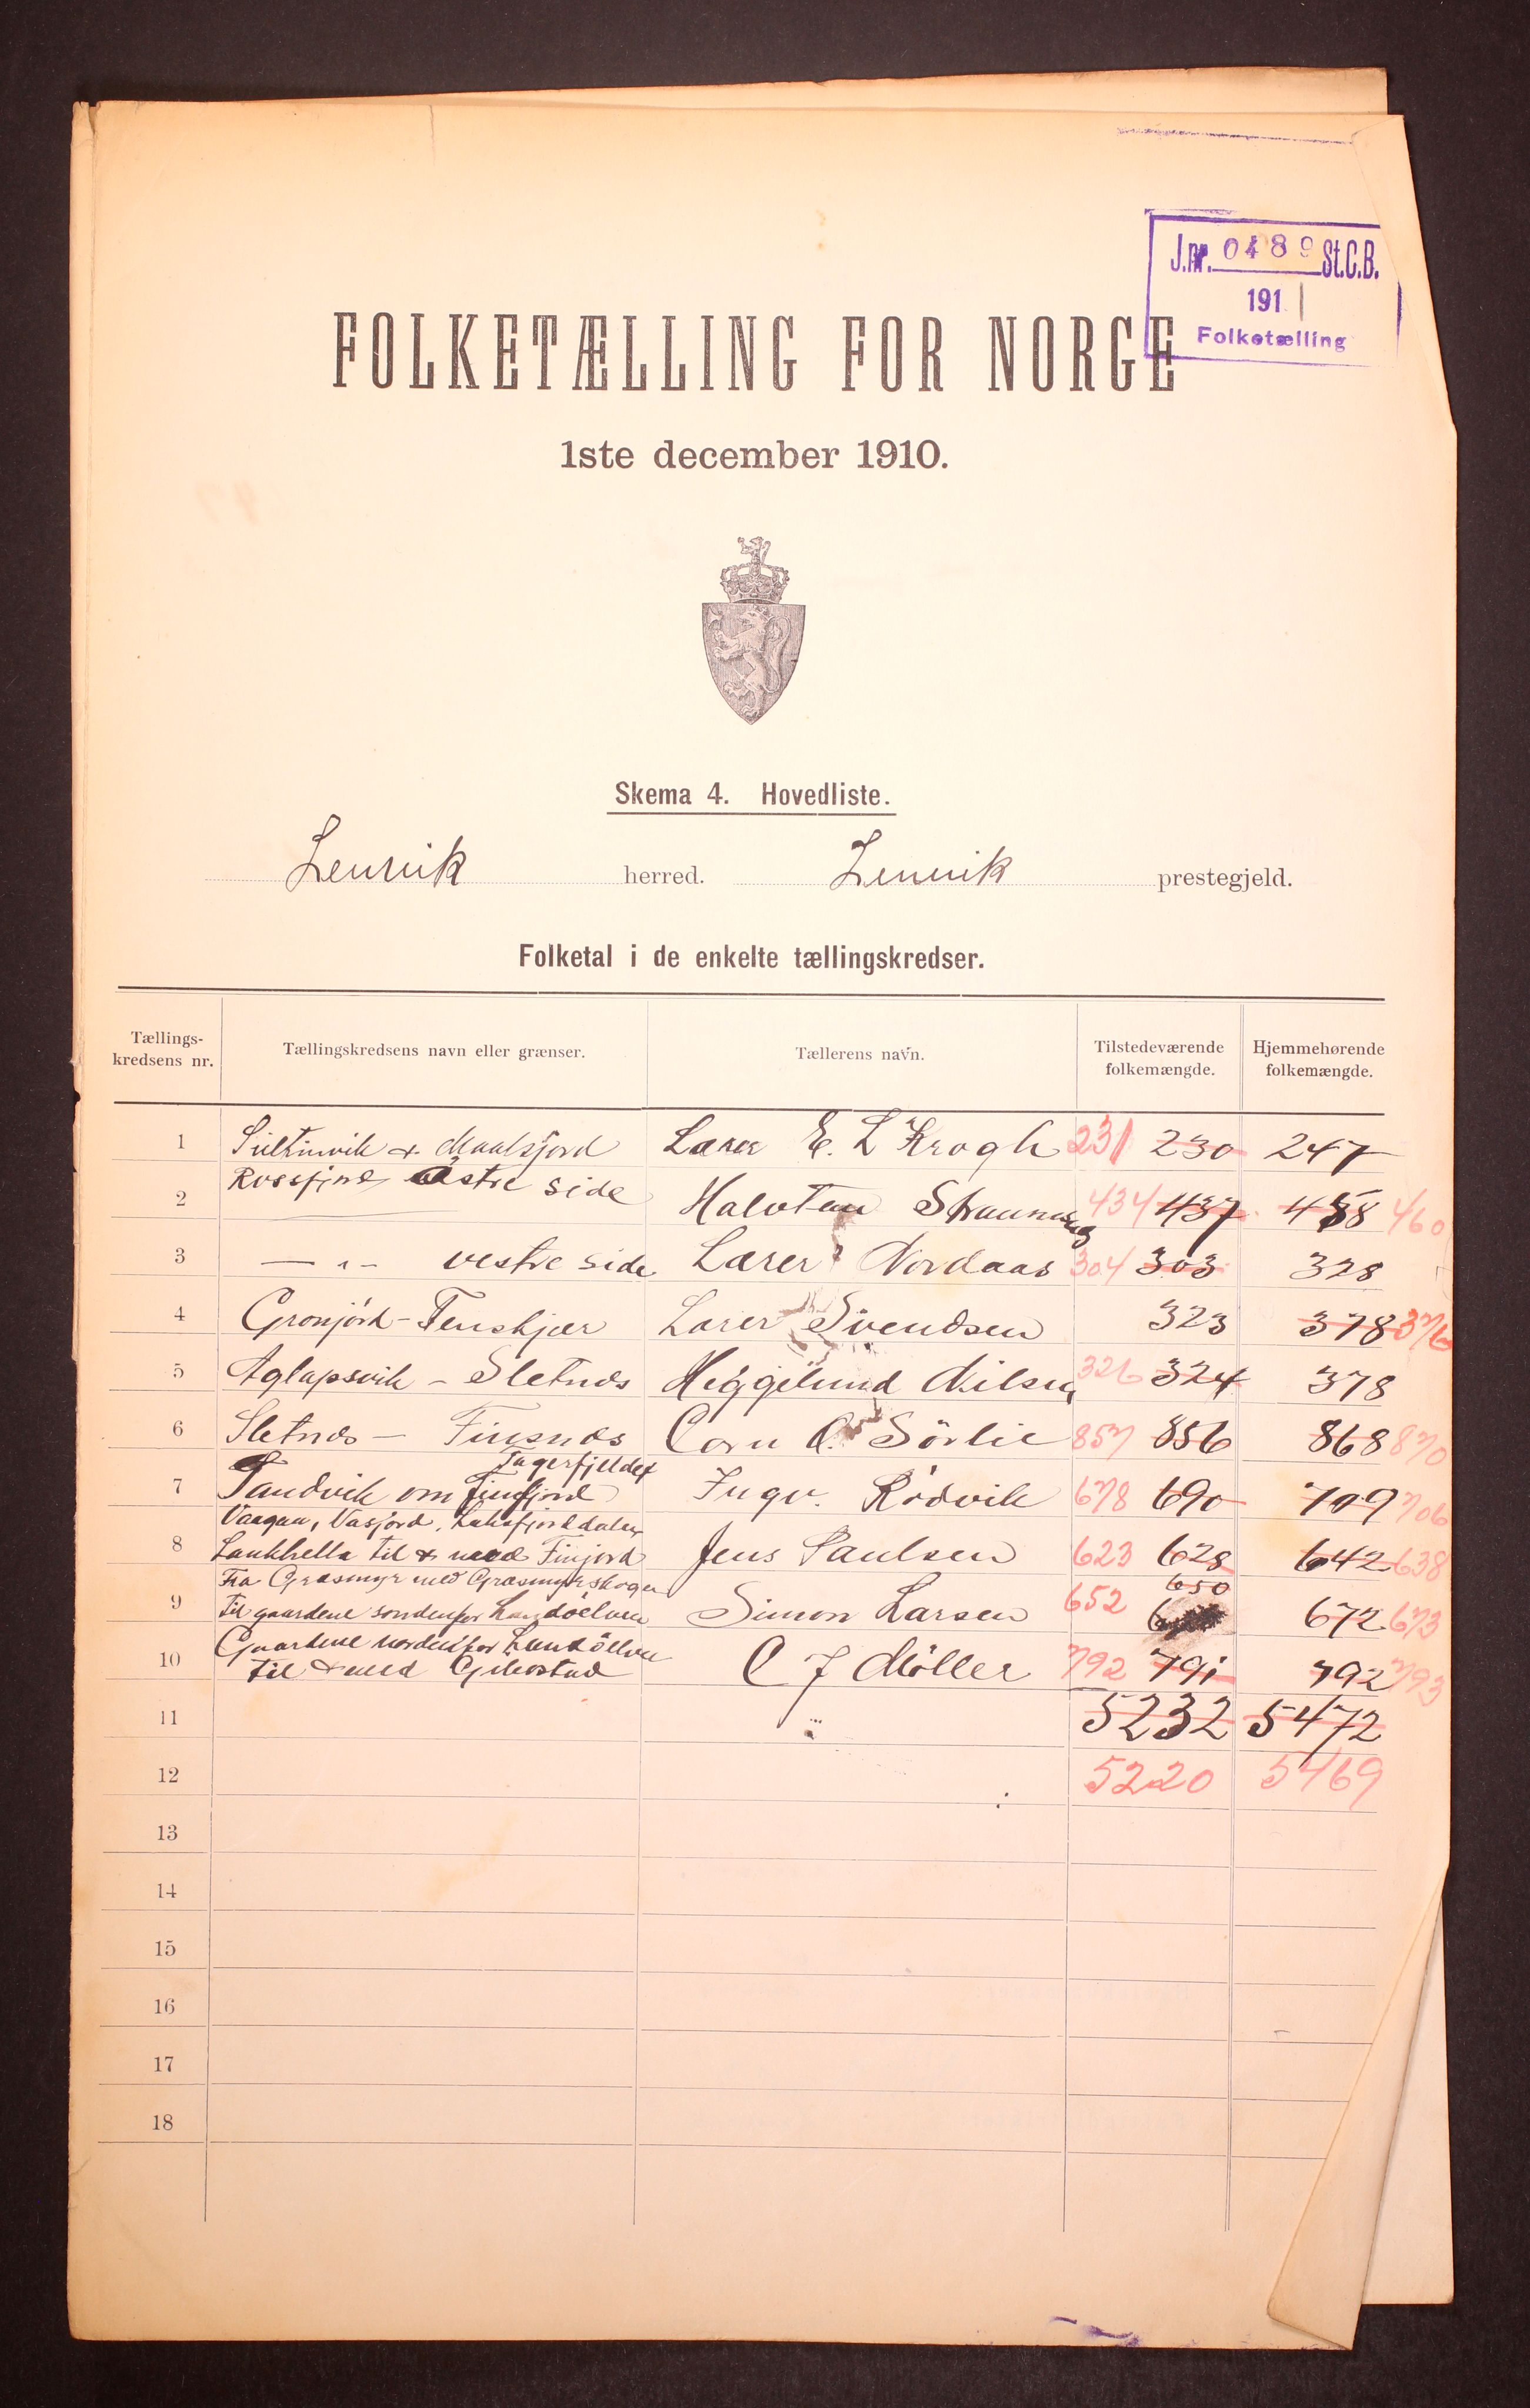 J.nr. 0489 St.C.B.
191 |
Folketælling
FOLKETÆLLING FOR NORGE
1ste december 1910.
Skema 4. Hovedliste.
Lenvik herred. Lenvik prestegjeld.
Folketal i de enkelte tællingskredser.
Tællings-kredsens nr. Tællingskredsens navn eller grænser. Tællerens navn. Tilstedeværende folkemængde. Hjemmehørende folkemængde.
1 Sultinvik & Maalsfjord Lærer E. L Krogh 231 230 247
2 Rossfjord Østre side Halvtan 434 437 458 460
3 — " — vestre side Lærer Nordaas 304 303 328
4 Gronjord - Fenskjær Lærer Svendsen 323 378 376
5 Aglapsvik - Sletnæs Heggelund Nilsen 326 324 378
6 Sletnæs - Finsnæs Corn A. Sörlie 857 856 868 870
7 Sandvik om Finfjord Ingv. Rödvik 678 690 709 706
Vaagan, Vasjord,
8 Lankhella til & med Finjord Jens Paulsen 623 628 642 638
Fra Græsmyr med Græsmyrskogen 650
9 til gaardene søndenfor Simon Larsen 652 672 673
Gaardene nordenfor
10 til & med Gibostad C J Möller 792 791 792 793
11 5232 5472
12 5220 5469
13
14
15
16
17
18